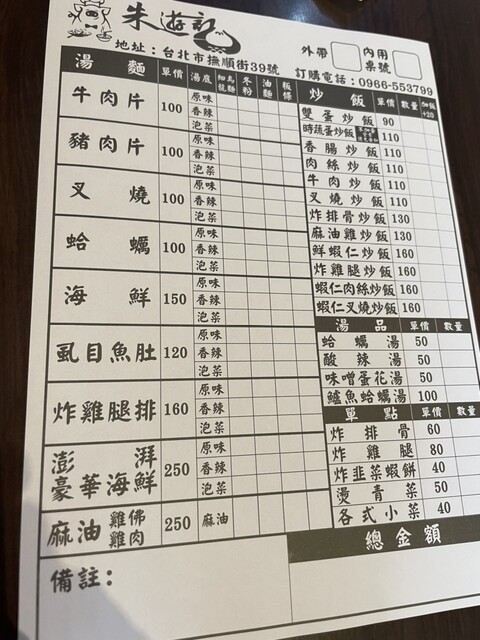 朱遊記
地址：台北市撫順街39號
外帶 內用桌號
訂購電話：0966-553799
湯麵 單價 湯底 細麵 烏龍 冬粉 油麵 粄條
牛肉片 100 原味 香辣 泡菜
豬肉片 100 原味 香辣 泡菜
叉燒 100 原味 香辣 泡菜
蛤蠣 100 原味 香辣 泡菜
海鮮 150 原味 香辣 泡菜
虱目魚肚 120 原味 香辣 泡菜
炸雞腿排 160 原味 香辣 泡菜
澎湃豪華海鮮 250 原味 香辣 泡菜
麻油雞佛雞肉 250 麻油
備註：
炒飯 單價 數量 加飯+20
雙蛋炒飯 90
時蔬蛋炒飯 110
香腸炒飯 110
肉絲炒飯 110
牛肉炒飯 110
叉燒炒飯 110
炸排骨炒飯 130
麻油雞炒飯 130
鮮蝦仁炒飯 160
炸雞腿炒飯 160
蝦仁肉絲炒飯 160
蝦仁叉燒炒飯 160
湯品 單價 數量
蛤蠣湯 50
酸辣湯 50
味噌蛋花湯 50
鱸魚蛤蠣湯 100
單點 單價 數量
炸排骨 60
炸雞腿 80
炸韭菜蝦餅 40
燙青菜 50
各式小菜 40
總金額